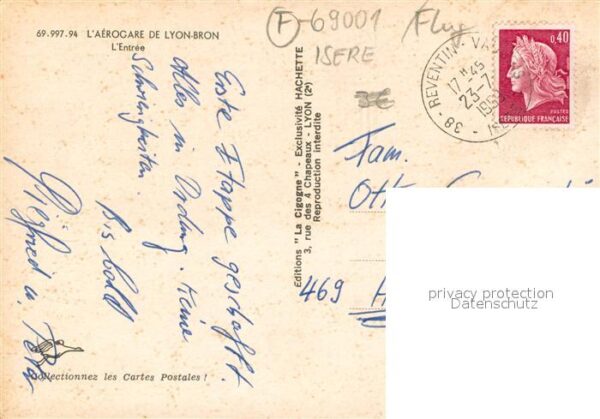 69-997-94 L'AÉROGARE DE LYON-BRON
L'Entrée
F 69001 Flug
ISERE
3€
Erste Etappe geschafft.
Alles in Ordnung. Keine
Schwierigkeiten
Bis bald
Siegfried u. Petra
Collectionnez les Cartes Postales !
Editions "La Cigogne" - Exclusivité HACHETTE
3, rue des 4 Chapeaux - LYON (2e)
Reproduction interdite
38 - REVENTIN - VA
17 H 45
23-7
0,40
POSTES
REPUBLIQUE FRANÇAISE
Fam.
Otto
469 H
privacy protection
Datenschutz